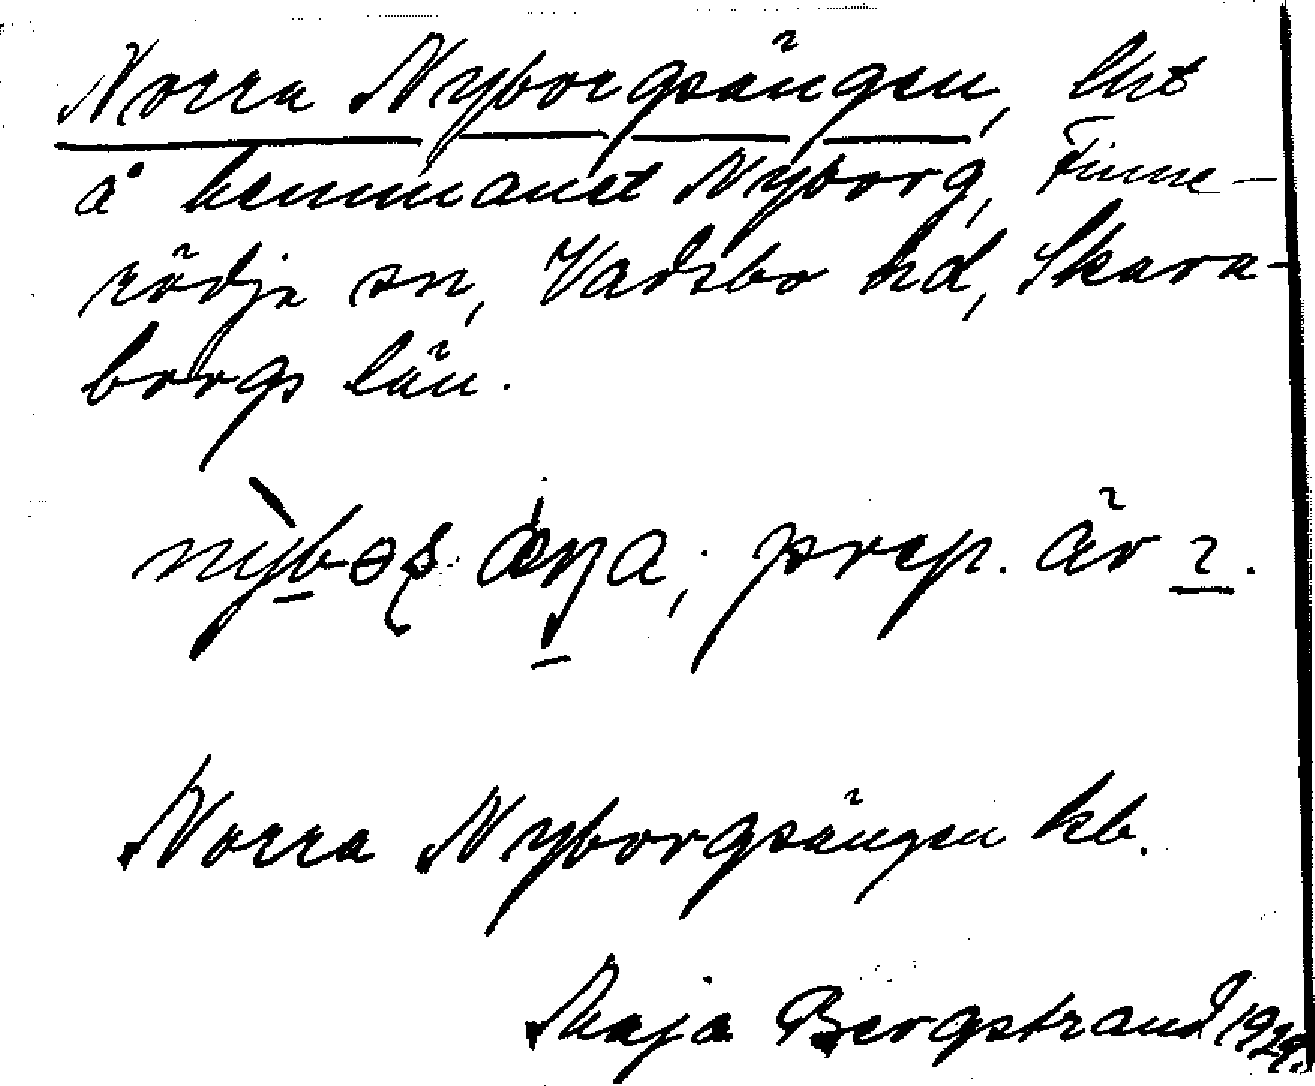 Norra Nyborgsängen, lht
å hemmanet Nyborg, Finne-
rödja sn, Vadsbo hd, Skara-
borgs län.
prep. är
Norra Nyborgsängen kb.
Maja Bergstrand